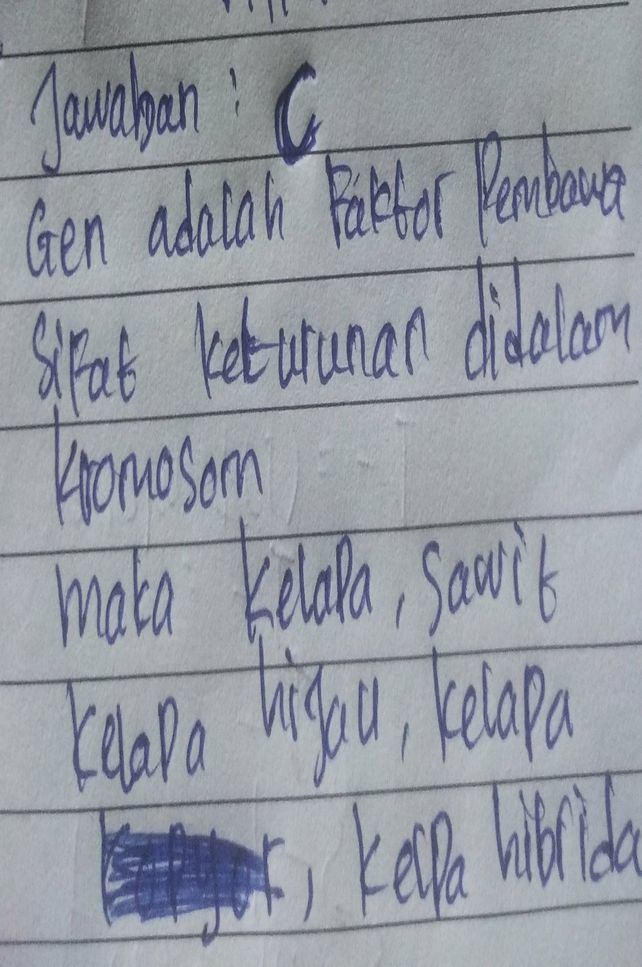 Jawaban : C
Gen adalah Faktor Pembawa
Sifat keturunan didalam
Kromosom
maka kelapa, sawit
kelapa hijau, kelapa
, kelpa hibrida